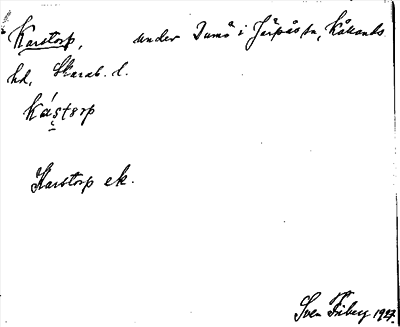 Karstorp, under Dumö i Järpås sn, Kållands
hd, Skarab. l.
Kás̨tɜrp
Karstorp ek.
Sven Friberg 1927.